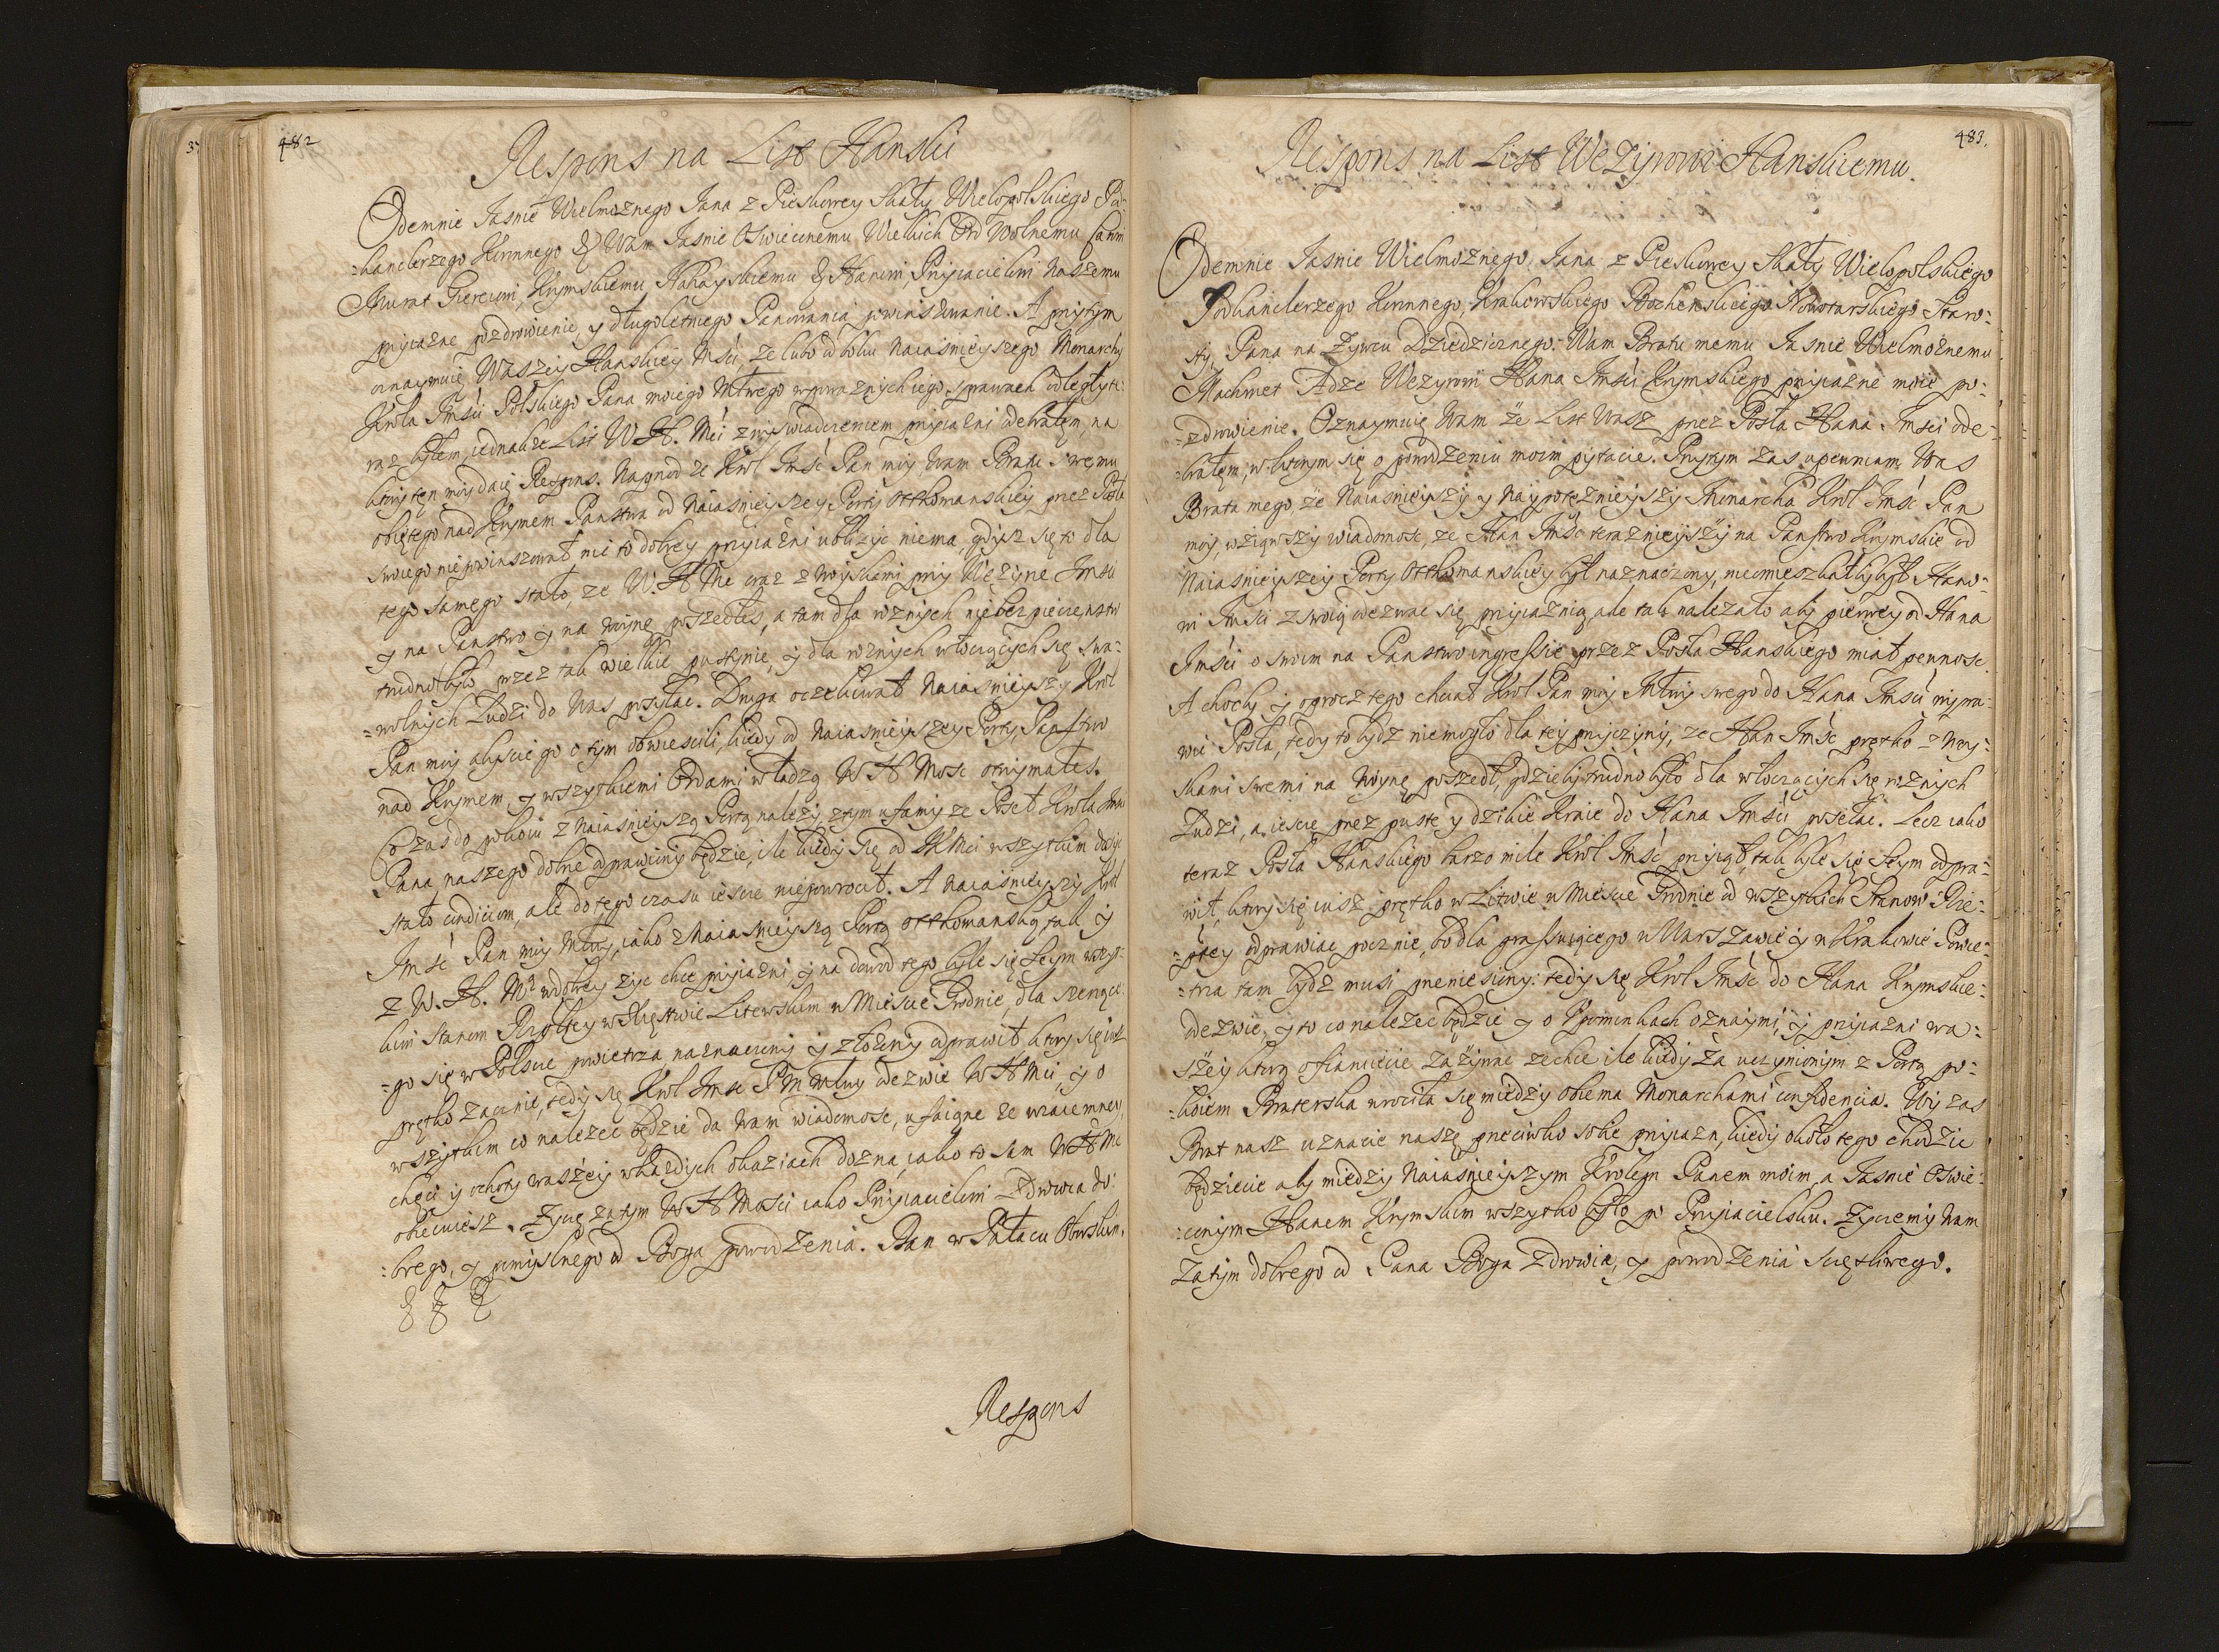 482
Respons na List Hanski
Odemnie Jasnie Wielmoznego Jana z Pieskowey Skały Wielopolskiego Pod-
=kanclerzego Koronnego & Wam Jasnie Oswieconemu Wielkich Ord Wolnemu
Murat Giereiowi, Krymskiemu Nahayskiemu & Hanowi, Przyiacielowi Naszemu
przyiazne pozdrowienie, y długoletniego Panowania powinszowanie. A przytym
oznaymuię Waszey Hanskiey Mści, że lubo od boku Naiasnieyszego Monarchy
Krola Jmści Polskiego Pana moiego Młwego w powaznych iego sprawach odległy te-
raz byłem, iednakże List W H. Mci z wyswiadczeniem przyiazni odebrałem, na
ktory ten moy daię Respons. Naprzod ze Krol Jmść Pan moy, Wam Bratu swemu
obiętego nad Krymem Panstwa od Naiasnieyszey Porty Otthomanskiey przez Posła
swoiego niepowinszował, nic to dobrey przyiazni ubliżyc niema, gdysz się to dla
tego samego stało, ze W. H Mc oraz z woyskami przy Wezyrze Jmsci
y na Panstwo y na woynę poszedłes, a tam dla roznych niebezpieczenstw
trudno było przez tak wielkie pustynie, y dla roznych włoczących się swa-
=wolnych Ludzi do Was posyłac. Druga oczekiwał Naiasnieyszy Krol
Pan moy abyscie go o tym obwiescili, kiedy od Naiasnieyszey Porty, Panstwo
nad Krymem, y wszytkiemi Ordami władzą W H Mosc otrzymałes.
Co zas do pokoiu z Naiasnieyszą Portą należy, zتym ufamy ze Poseł Krola Jmsci
Pana naszego dobrze odprawiony będzie, ile kiedy się od KMci wszytkim dosyc
stało condiciom, ale do tego czasu ieszcze niepowrocił. A Naiasnieyszy Krol
Jmść Pan moy Młwy, iako z Naiasnieyszą Portą Otthomanską, tak y
z W. H. Mcią w dobrey zyc chce przyiazni, y na dowod tego byle się Seym wszyt-
kim Stanom Rzpltey w Xięstwie Litewskim w Miescie Grodnie, dla szerzące-
=go się w Polszcze powietrza naznaczony y złożony odprawił, ktory się iusz
prętko zacznie, tedy się Krol Jmsc P M Młwy odezwie W H Mci, y o
wszytkim co należec będzie da Wam wiadomosc, ufaiąc ze wzaiemney
chęci y ochoty waszey w każdych okaziach dozna, iako to sam W H Mc
obiecuiesz. Zyczę zatym W H Mości iako Przyiacielowi Zdrowia do-
=brego, y pomyslnego od Boga powodzenia. Dan w Pałacu Oborskim.
Respons
483.
Respons na List Wezyrowi Hanskiemu.
Odemnie Jasnie Wielmożnego Jana z Pieskowey Skały Wielopolskiego
Podkanclerzego Koronnego, Krakowskiego Bochenskiego Nowotarskiego Staro-
sty, Pana na Żywcu Dziedzicznego. Wam Bratu memu Jasnie Wielmożnemu
Machmet Adze Wezyrowi Hana Jmści Krymskiego przyiazne moie po-
=zdrowienie. Oznaymuię Wam że List Wasz przez Posła Hana Jmsci ode-
=brałem, w ktorym się o powodzeniu moim pytacie. Przytym zas upewniam Was
Brata mego, że Naiasnieyszy y Naypotężnieyszy Monarcha Krol Jmsc Pan
moy, wziąwszy wiadomosc, ze Han Jmsc terazneyszy na Panstwo Krymskie od
Naiasnieyszey Porty Otthomanskiey był naznaczony, nieomieszkałby był Hano-
wi Jmsci z swoią odezwac się przyiaznią, ale tak należało aby pierwey od Hana
Jmści o swoim na Panstwo ingressie przez Posła Hanskiego miał pewnosc.
A chocby y oprocz tego chciał Krol Pan moy Młwy swego do Hana Jmsci wypra-
wic Posła, tedy to bydz niemogło dla tey przyczyny, ze Han Jmsc prętko z Woy-
skami swemi na Woynę poszedł, gdzieby trudno było dla włoczących się roznych
Ludzi, a ieszcze przez puste y dzikie Kraie do Hana Jmści posełac. Lecz iako
teraz Posła Hanskiego barzo mile Krol Jmść przyiął, tak byle się Seym odpra-
wił, ktory się iusz prętko w Litwie w Miescie Grodnie od wszytkich Stanow Rze-
=ptey odprawiac pocznie, bo dla grassuiącego w Warszawie y w Krakowie Powie-
=trza tam bydz musi przeniesiony: tedy się Krol Jmsc do Hana Krymskie-
odezwie, y to co należec będzie y o Upominkach oznaymi, y przyiazni wa-
szey ktorą ofiaruiecie zażywac zechce, ile kiedy za uczynionym z Portą po-
=koiem Braterska wrociła się między obiema Monarchami confidencia. Wy zas
Brat nasz uznacie naszę przeciwko sobie przyiazn, kiedy około tego chodzic
będziecie aby między Naiasnieyszym Krolem Panem moim, a Jasnie Oswie-
=conym Hanem Krymskim wszytko było po Przyiacielsku. Zyczemy Wam
Zatym dobrego od Pana Boga Zdrowia, y powodzenia sczęsliwego.